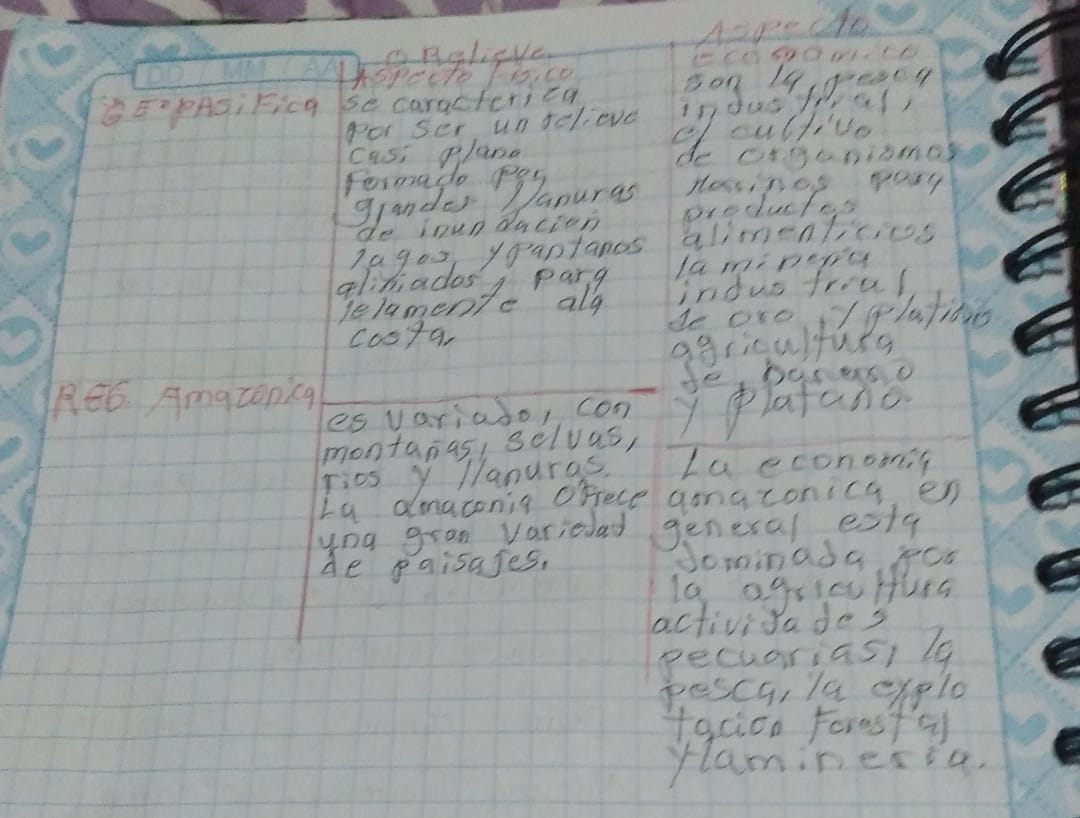 DD / MM / AA
Relieve
Aspecto Fisico
Aspecto
Economico
REG PASiFica
se caracteriza
por ser un relieve
casi plano
Formado por
grandes llanuras
de inundacion
lagos, y pantanos
aliniados, para
lelamente ala
costa
son la pesca
industrial,
el cultivo
de organismos
Marinos para
productos
alimenticios
la mineria
industrial,
de oro y platino
agricultura
de banano
y platano
REG. Amazonica
es variado, con
montañas, selvas,
rios y llanuras.
La amaconia ofrece
una gran variedad
de paisajes.
La economia
amazonica en
general esta
dominada por
la agricultura
actividades
pecuarias, la
pesca, la explo
tacion Forestal
y la mineria.